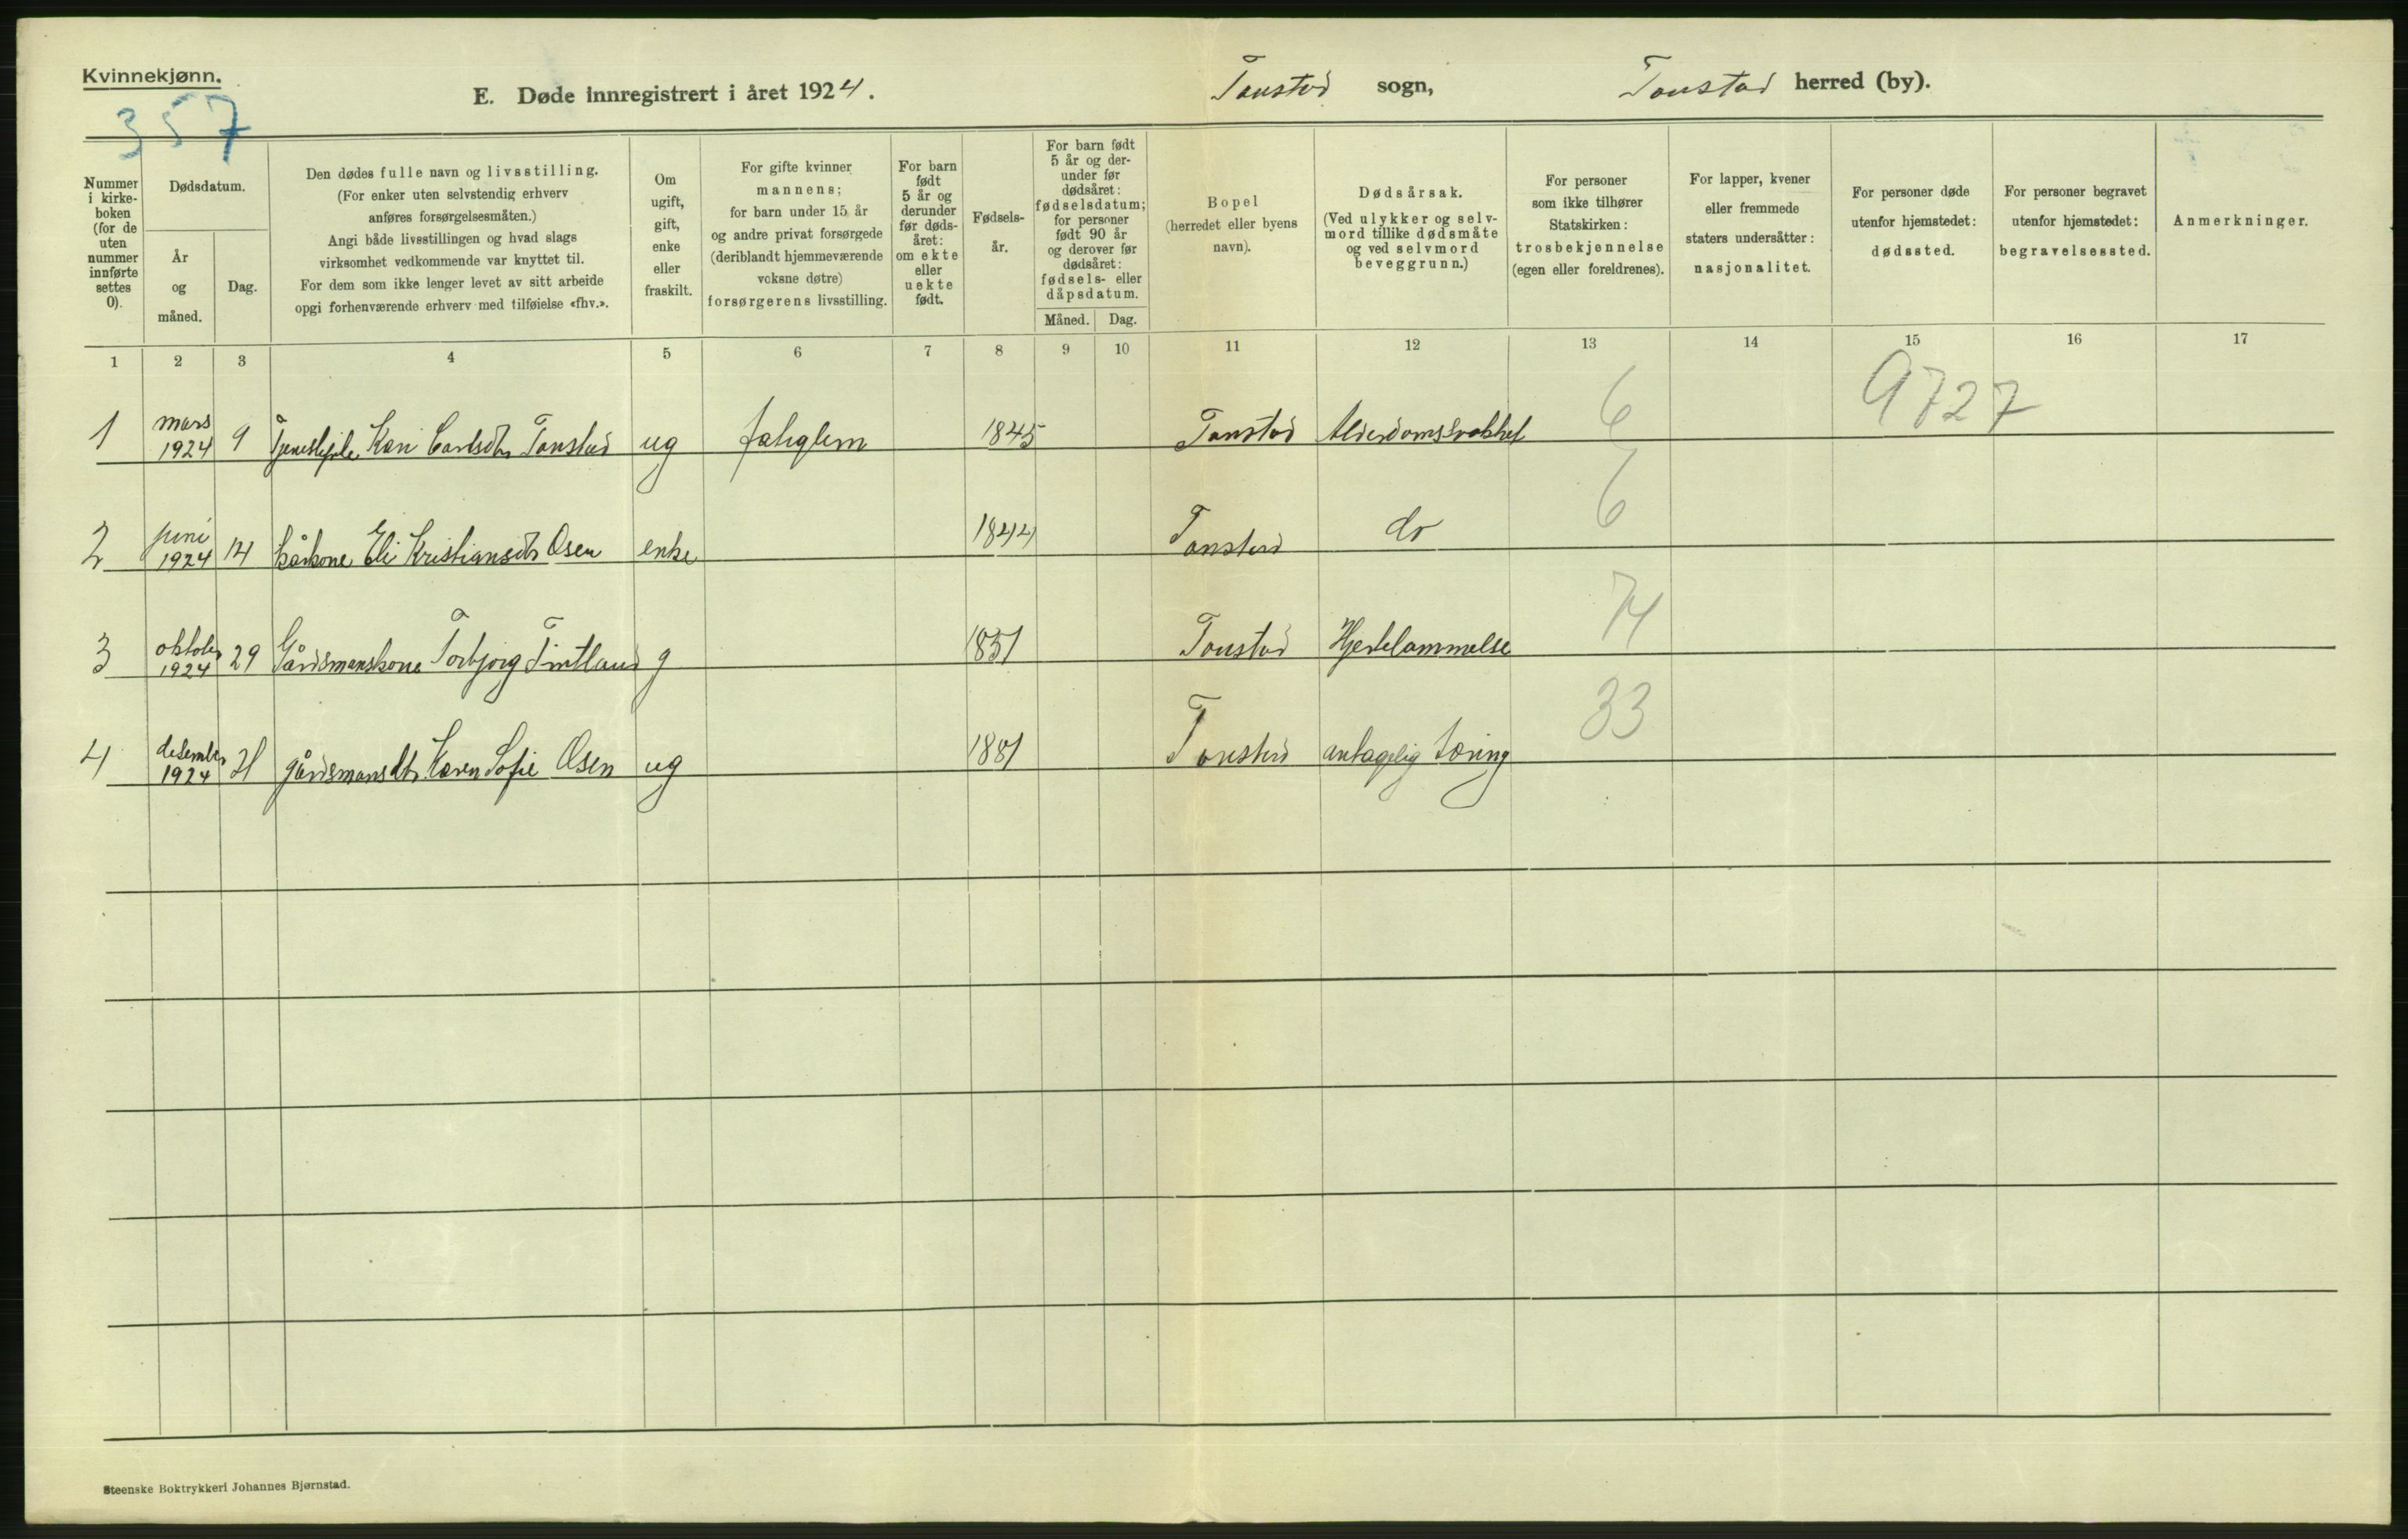 Kvinnekjønn.
357
E. Døde innregistrert i året 1924.
Tonstad sogn,
Tonstad herred (by).
Nummer i kirke-boken (for de uten nummer innførte settes 0).
Dødsdatum.
År og måned.
Dag.
Den dødes fulle navn og livsstilling.
(For enker uten selvstendig erhverv
anføres forsørgelsesmåten.)
Angi både livsstillingen og hvad slags
virksomhet vedkommende var knyttet til.
For dem som ikke lenger levet av sitt arbeide
opgi forhenværende erhverv med tilføielse «fhv.».
Om ugift, gift, enke eller fraskilt.
For gifte kvinner
mannens;
for barn under 15 år
og andre privat forsørgede
(deriblandt hjemmeværende
voksne døtre)
forsørgerens livsstilling.
For barn født 5 år og derunder før døds-året: om ekte eller uekte født.
Fødsels-år.
For barn født 5 år og der-under før dødsåret: fødselsdatum; for personer født 90 år og derover før dødsåret: fødsels- eller dåpsdatum.
Måned.
Dag.
Bopel
(herredet eller byens
navn).
Dødsårsak.
(Ved ulykker og selv-
mord tillike dødsmåte
og ved selvmord
beveggrunn.)
For personer
som ikke tilhører
Statskirken:
trosbekjennelse
(egen eller foreldrenes).
For lapper, kvener
eller fremmede
staters undersåtter:
nasjonalitet.
For personer døde
utenfor hjemstedet:
dødssted.
For personer begravet
utenfor hjemstedet:
begravelsessted.
Anmerkninger.
1 2 3 4 5 6 7 8 9 10 11 12 13 14 15 16 17
9727
1 mars 1924 9 Kari Carlsdtr Tonstad ug fatiglem 1845 Tonstad Alderdomssvakhet 6
2 juni 1924 14 Kårkone Eli Kristiansdtr Osen enke 1844 Tonstad do 6
3 oktober 1924 29 Gårdmanskone Torbjørg Tintland g 1851 Tonstad Hjertelammelse 74
4 desember 1924 gårdmansdtr. Karen Sofie Osen ug 1881 Tonstad antagelig tæring 33
Steenske Boktrykkeri Johannes Bjørnstad.